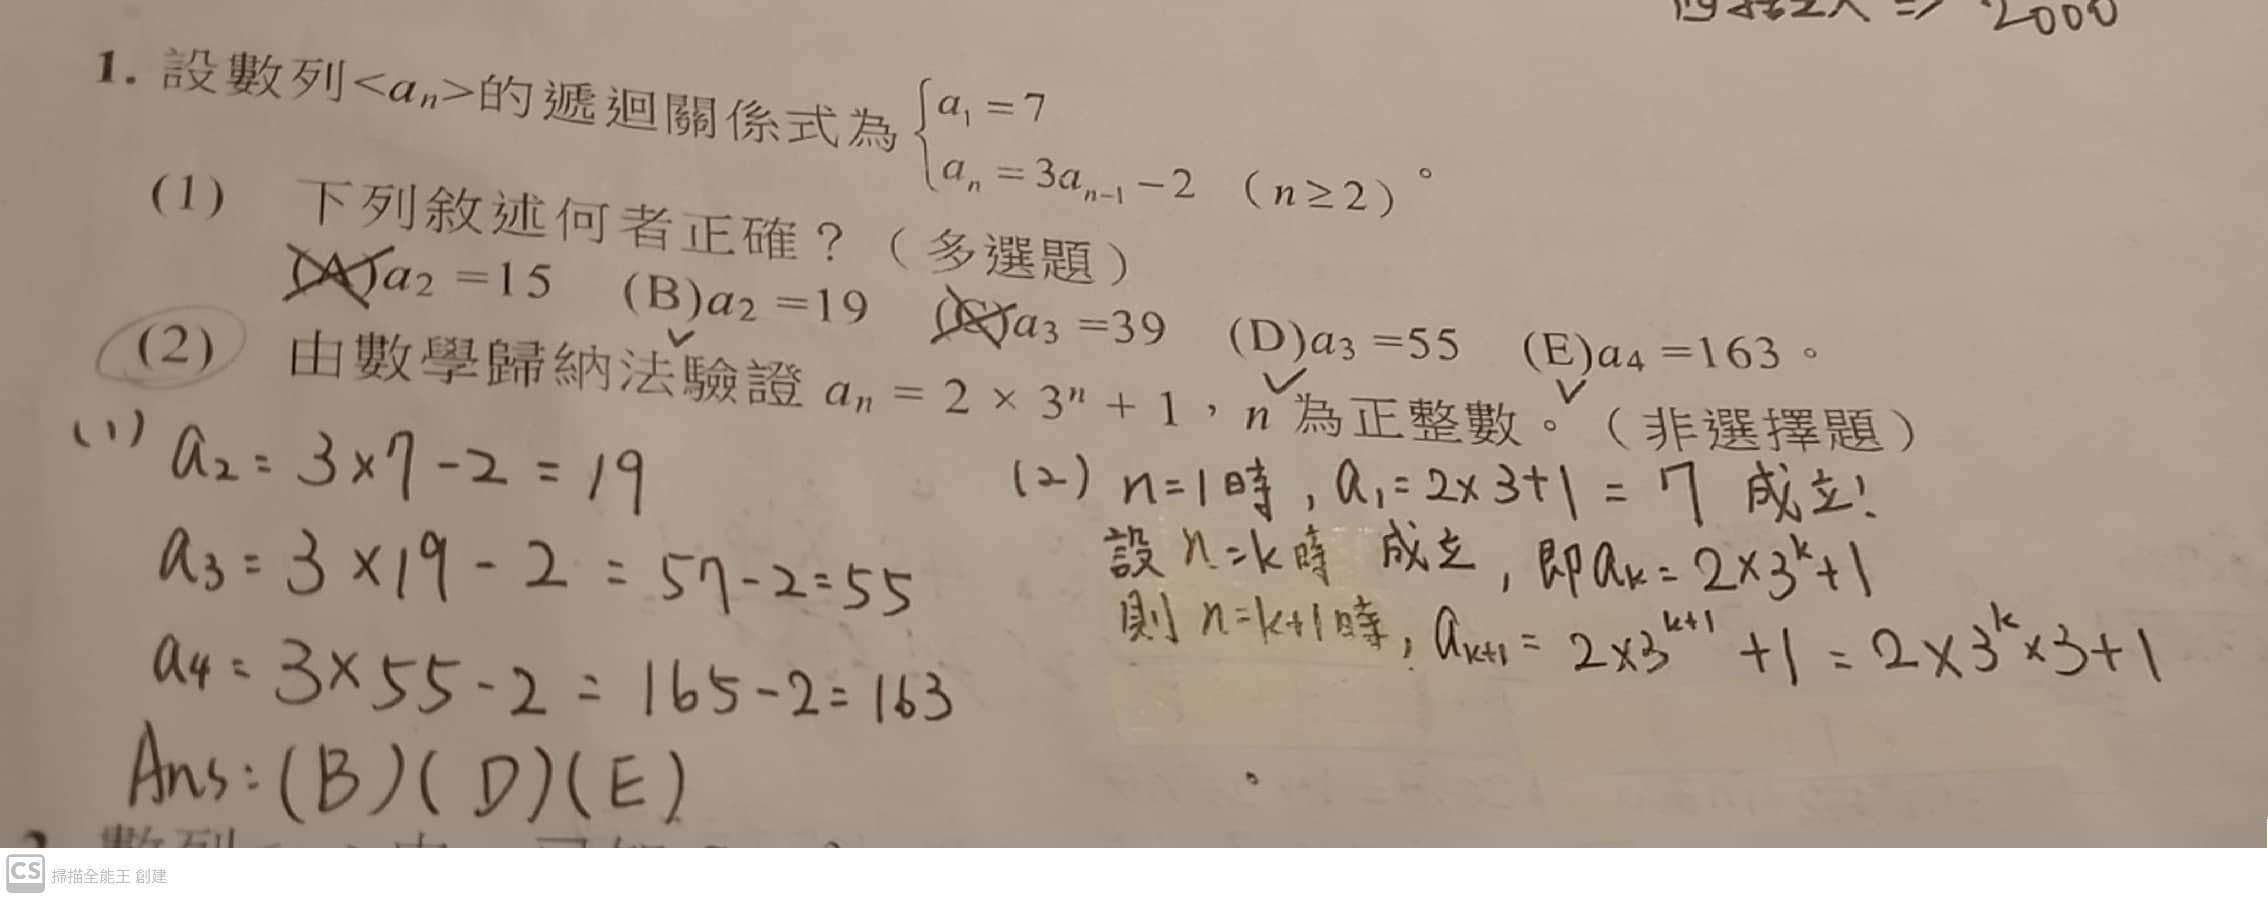 ⇒ 2000
1. 設數列<aₙ>的遞迴關係式為 { a₁ = 7
aₙ = 3aₙ₋₁ − 2 (n ≥ 2)。
(1) 下列敘述何者正確？（多選題）
(A)a₂ =15 (B)a₂ =19 (C)a₃ =39 (D)a₃ =55 (E)a₄ =163。
(2) 由數學歸納法驗證 aₙ = 2 × 3ⁿ + 1，n 為正整數。（非選擇題）
(1) a₂ = 3×7-2 = 19
a₃ = 3×19-2 = 57-2=55
a₄ = 3×55-2 = 165-2=163
Ans:(B)(D)(E)
(2) n=1時, a₁=2×3+1 = 7 成立!
設 n=k時 成立, 即aₖ=2×3ᵏ+1
則 n=k+1時, aₖ₊₁= 2×3ᵏ⁺¹+1 = 2×3ᵏ×3+1
CS 掃描全能王 創建